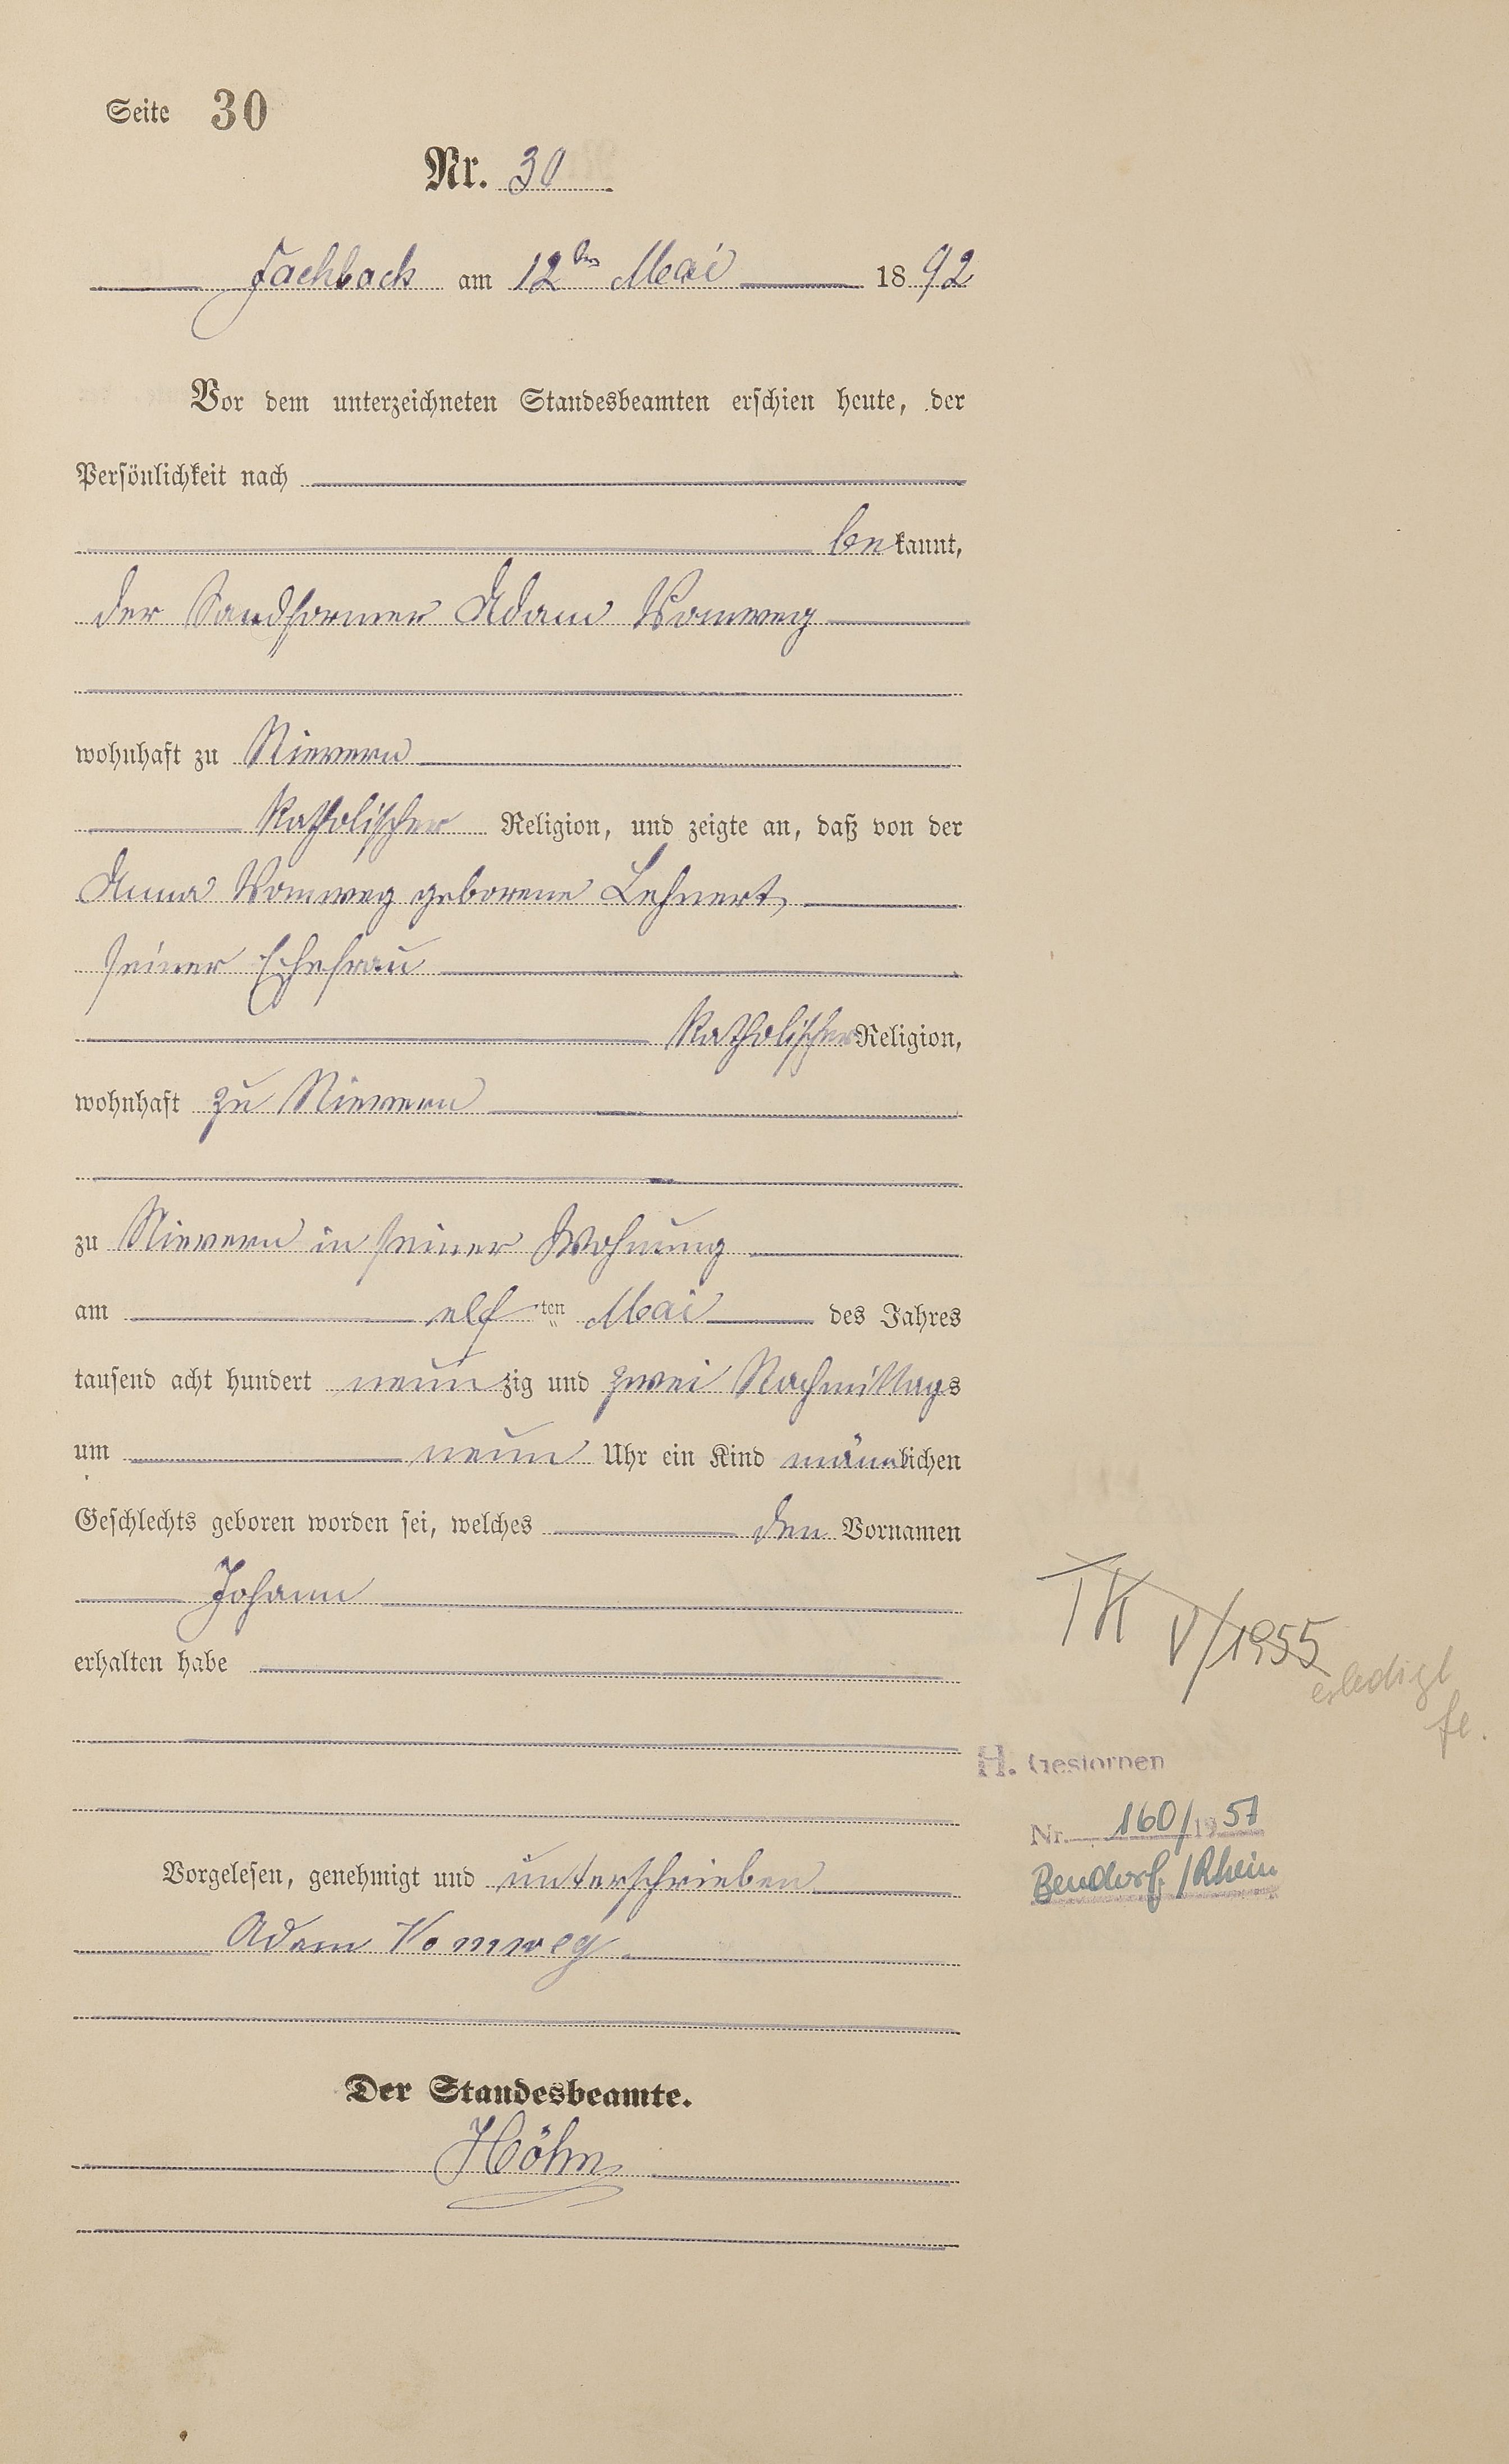 Seite 30
Nr. 30
Fachbach am 12ten Mai 1892
Vor dem unterzeichneten Standesbeamten erschien heute, der
Persönlichkeit nach
bekannt,
der Sandformer Adam Vomweg
wohnhaft zu Nievern
katholischer Religion, und zeigte an, daß von der
Anna Vomweg geborene Lehnert,
seiner Ehefrau
katholischer Religion,
wohnhaft zu Nievern
zu Nievern in seiner Wohnung
am elften Mai des Jahres
tausend acht hundert neunzig und zwei Nachmittags
um neun Uhr ein Kind männlichen
Geschlechts geboren worden sei, welches den Vornamen
Johann
erhalten habe
Vorgelesen, genehmigt und unterschrieben
Adam Vomweg
Der Standesbeamte.
Höhn
TK V/1955
erledigt
fe.
H. Gestorben
Nr. 160/1957
Bendorf/Rhein